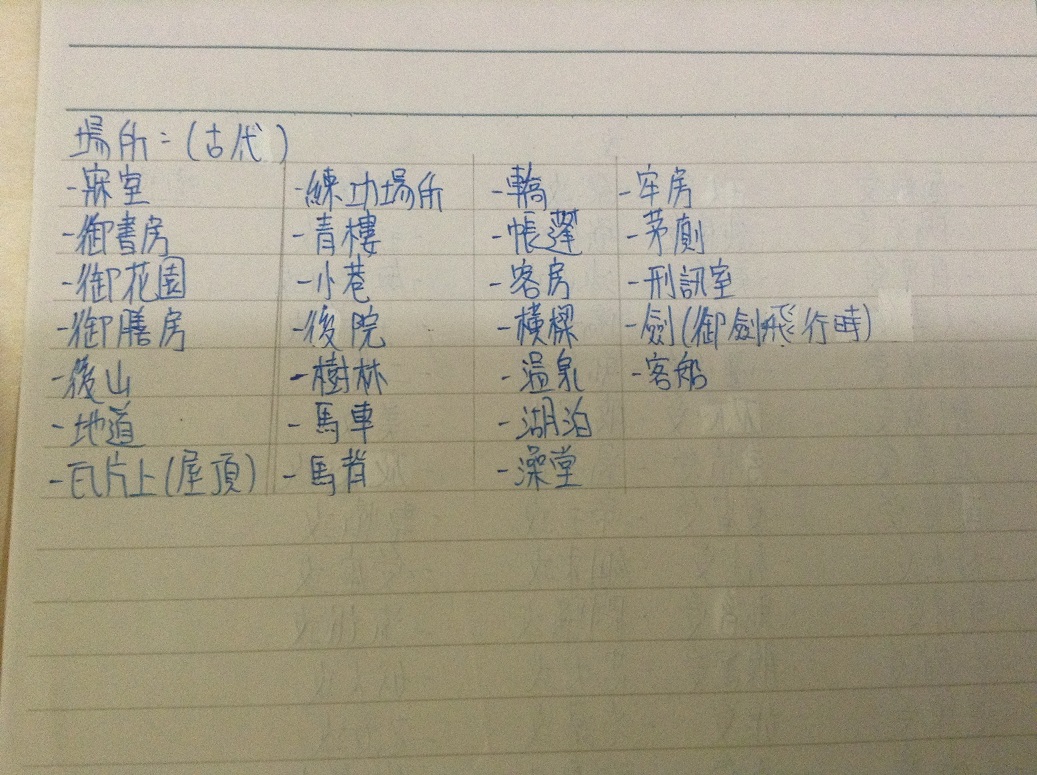 場所:(古代)
-寐室 -練功場所 -轎 -牢房
-御書房 -青樓 -帳蓬 -茅廁
-御花園 -小巷 -客房 -刑訊室
-御膳房 -後院 -橫樑 -劍(御劍飛行時)
-後山 -樹林 -溫泉 -客船
-地道 -馬車 -湖泊
-瓦片上(屋頂) -馬背 -澡堂